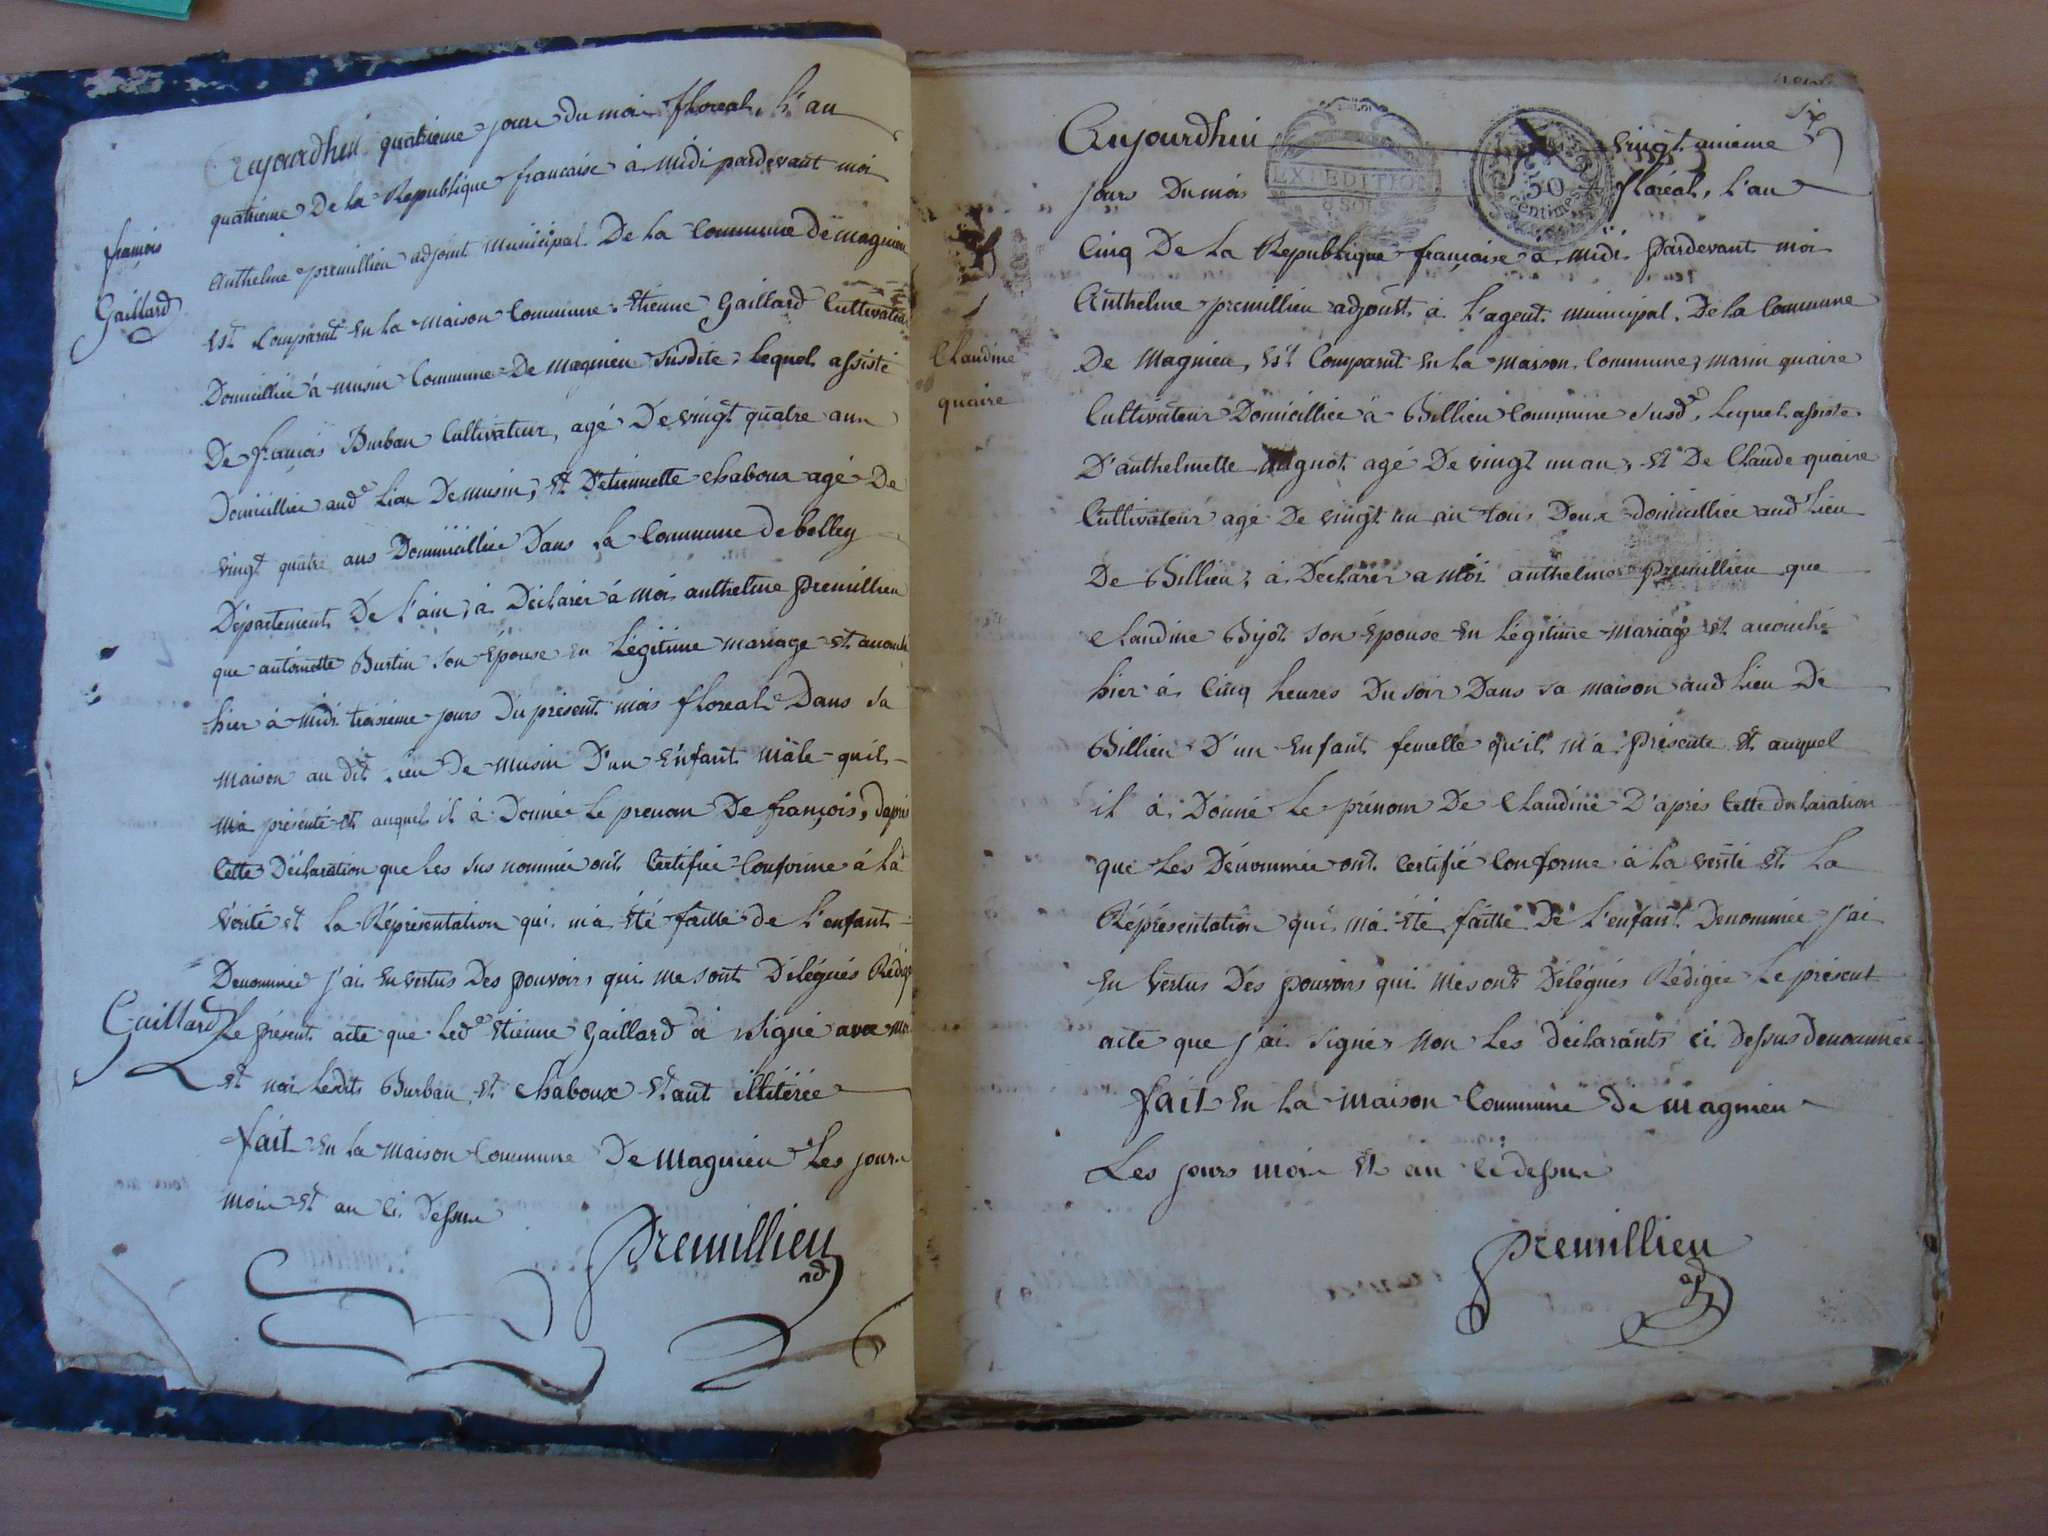 Aujourdhui quatrieme jour du mois floreal, L'an
quatrieme De la Republique francaise à midi pardevant moi
Anthelme premillieu adjoint municipal De la Commune de magnieu
françois
Gaillard
Est Comparut En la maison Commune Etienne Gaillard Cultivateur
Domicillié à musin Commune De magnieu susdite, lequel assisté
De françois Burban Cultivateur, agé De vingt quatre ans
Domicillié aud.^e Lieu De musin, Et D'etiennette chaboux agé De
vingt quatre ans Domicilliée Dans la Commune de belley
Département De l'ain, à Déclarér à moi anthelme premillieu
que antoinette Burtin son Épouse en Légitime mariage Et acouché
hier à midi troisieme jours Du présent mois floreal Dans sa
maison au dit Lieu De musin D'un Enfant mâle quil
m'a présenté Et auquel il à Donnée Le prenom De françois, dapres
Cette Déclaration que Les sus nommée ont Certifiée Conforme à La
Vérité et La Réprésentation qui m'a Eté faitte de L'enfant
Denommée J'ai En vertus Des pouvoirs qui me sont Délégués Rédigé
Gaillard
Le présent acte que Led.^e Etienne Gaillard à signé avec moi
Et noi Lesdits Burban Et chaboux Etant illitérée
fait En La maison Commune De magnieu Les jours
mois Et an Ci Dessus
Premillieu
ad
Aujourdhui vingt unieme
EXPEDITION
50
Centimes
Six
jours Du mois floréal, L'an
Cinq De La Republique françaice à midi pardevant moi
Anthelme premillieu adjoint à L'agent municipal De la Commune
De Magnieu, Est Comparut En la maison Commune, marin quaire
Claudine
quaire
Cultivateur Domicilliée à Billieu Commune susd.^e Lequel assisté
D'anthelmette agé De vingt un an, Et De Claude quaire
Cultivateur agé De vingt un an tous Deux domicilliée aud Lieu
De Billieu, à Déclarér a moi anthelme premillieu que
Claudine Bijot son Épouse En Légitime mariage Et acouché
hier à Cinq heures Du soir Dans sa maison aud Lieu De
Billieu D'un Enfant femelle qu'il m'a Présenté Et auquel
il à Donné Le prénom De Claudine D'aprés Cette déclaration
que Les Dénommée ont Certifié Conforme à La vérité Et La
Réprésentation qui m'a Été faitte De L'enfant Denommée J'ai
En vertus Des pouvoirs qui me sont Délégués Rédigée Le présent
acte que J'ai signé, Non Les déclarants Ci Dessus denommée
fait En La maison Commune De magnieu
Les jours mois Et an Ci dessus
Premillieu
ad